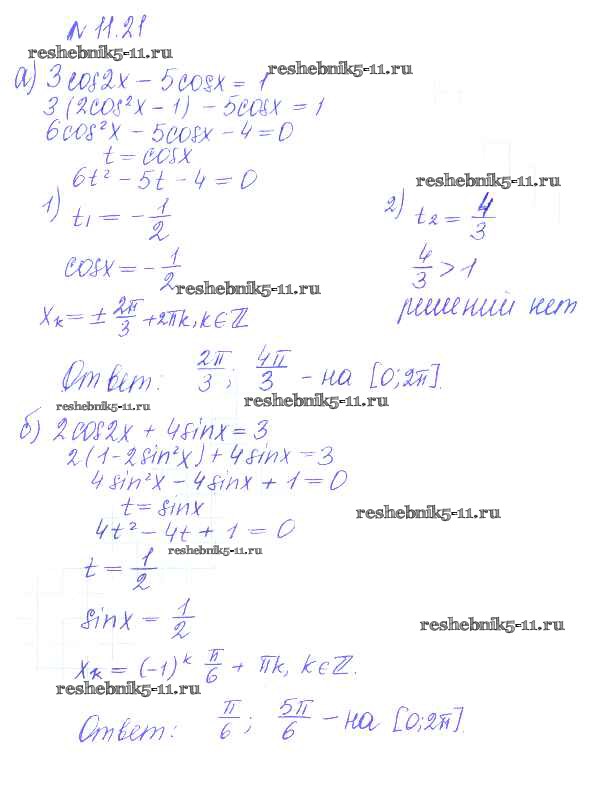 № 11.21
reshebnik5-11.ru
reshebnik5-11.ru
а) 3cos2x – 5cosx = 1
3(2cos²x – 1) – 5cosx = 1
6cos²x – 5cosx – 4 = 0
t = cosx
6t² – 5t – 4 = 0
reshebnik5-11.ru
1) t₁ = – 1/2
2) t₂ = 4/3
cosx = – 1/2
4/3 > 1
reshebnik5-11.ru
xₖ = ± 2π/3 + 2πk, k ∈ ℤ
решений нет
Ответ: 2π/3; 4π/3 – на [0; 2π].
reshebnik5-11.ru
reshebnik5-11.ru
б) 2cos2x + 4sinx = 3
2(1 – 2sin²x) + 4sinx = 3
4sin²x – 4sinx + 1 = 0
t = sinx
reshebnik5-11.ru
4t² – 4t + 1 = 0
reshebnik5-11.ru
t = 1/2
sinx = 1/2
reshebnik5-11.ru
xₖ = (–1)ᵏ π/6 + πk, k ∈ ℤ.
reshebnik5-11.ru
Ответ: π/6; 5π/6 – на [0; 2π].